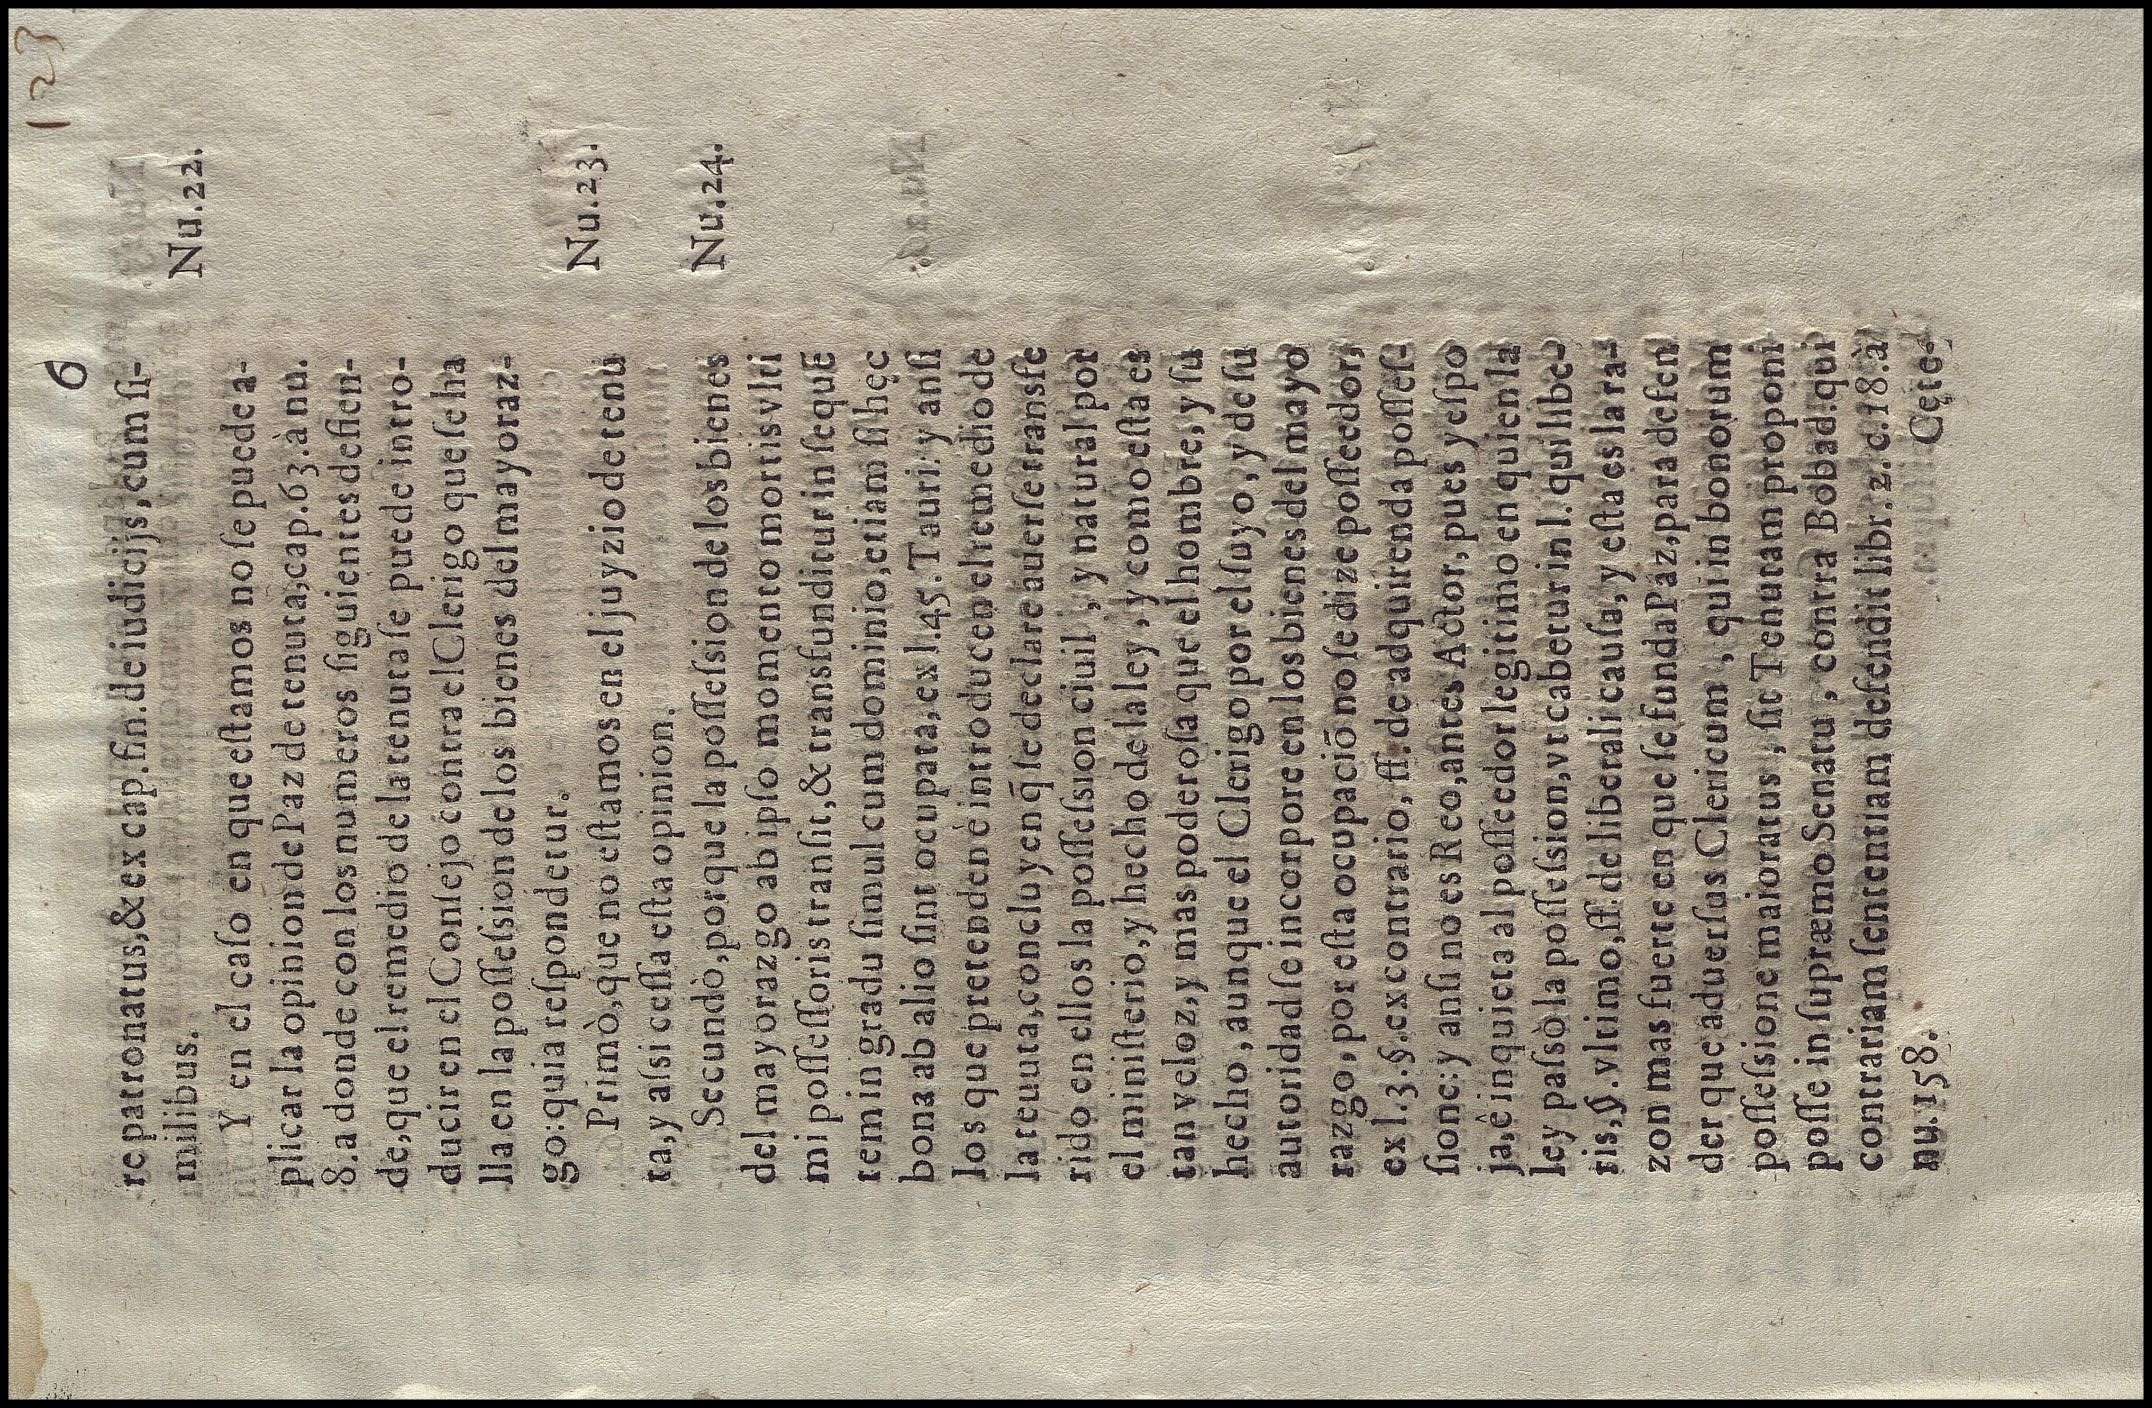 123
6
re patronatus, & ex cap. fin. de iudicijs, cum ſi-
milibus.
Nu. 22.
Y en el caſo en que eſtamos no ſe puede a-
plicar la opinion de Paz de tenuta, cap. 63. à nu.
8. a donde con los numeros ſiguientes defien-
de, que el remedio de la tenuta ſe puede intro-
ducir en el Conſejo contra el Clerigo que ſe ha
lla en la poſſeſsion de los bienes del mayoraz-
go: quia reſpondetur.
Nu. 23.
Primò, que no eſtamos en el juyzio de tenu
ta, y aſsi ceſſa eſta opinion.
Nu. 24.
Secundò, porque la poſſeſsion de los bienes
del mayorazgo ab ipſo momento mortis vlti
mi poſſeſſoris tranſit, & transfunditur in ſequē
rem in gradu ſimul cum dominio, etiam ſi hęc
bona ab alio ſint ocupata, ex l. 45. Tauri: y anſi
los que pretenden è introducen el remedio de
la teuuta, concluyen q̄ ſe declare auerſe transfe
rido en ellos la poſſeſsion ciuil, y natural por
el miniſterio, y hecho de la ley, y como eſta es
tan veloz, y mas poderoſa que el hombre, y ſu
hecho, aunque el Clerigo por el ſuyo, y de ſu
autoridad ſe incorpore en los bienes del mayo
razgo, por eſta ocupaciō no ſe dize poſſeedor,
ex l. 3. §. ex contrario, ff. de adquirenda poſſeſ-
ſione: y anſi no es Reo, antes Actor, pues yeſpo
ja, ê inquieta al poſſeedor legitimo en quien la
ley paſsò la poſſeſsion, vt cabetur in l. qui libe-
ris, §. vltimo, ff. de liberali cauſa, y eſta es la ra-
zon mas fuerte en que ſe funda Paz, para defen
der que aduerſus Clericum, qui in bonorum
poſſeſsione maioratus, ſit Tenutam proponi
poſſe in ſupræmo Senatu, contra Bobad. qui
contrariam ſententiam defendit libr. 2. c. 18. à
nu. 158.
Cęte-